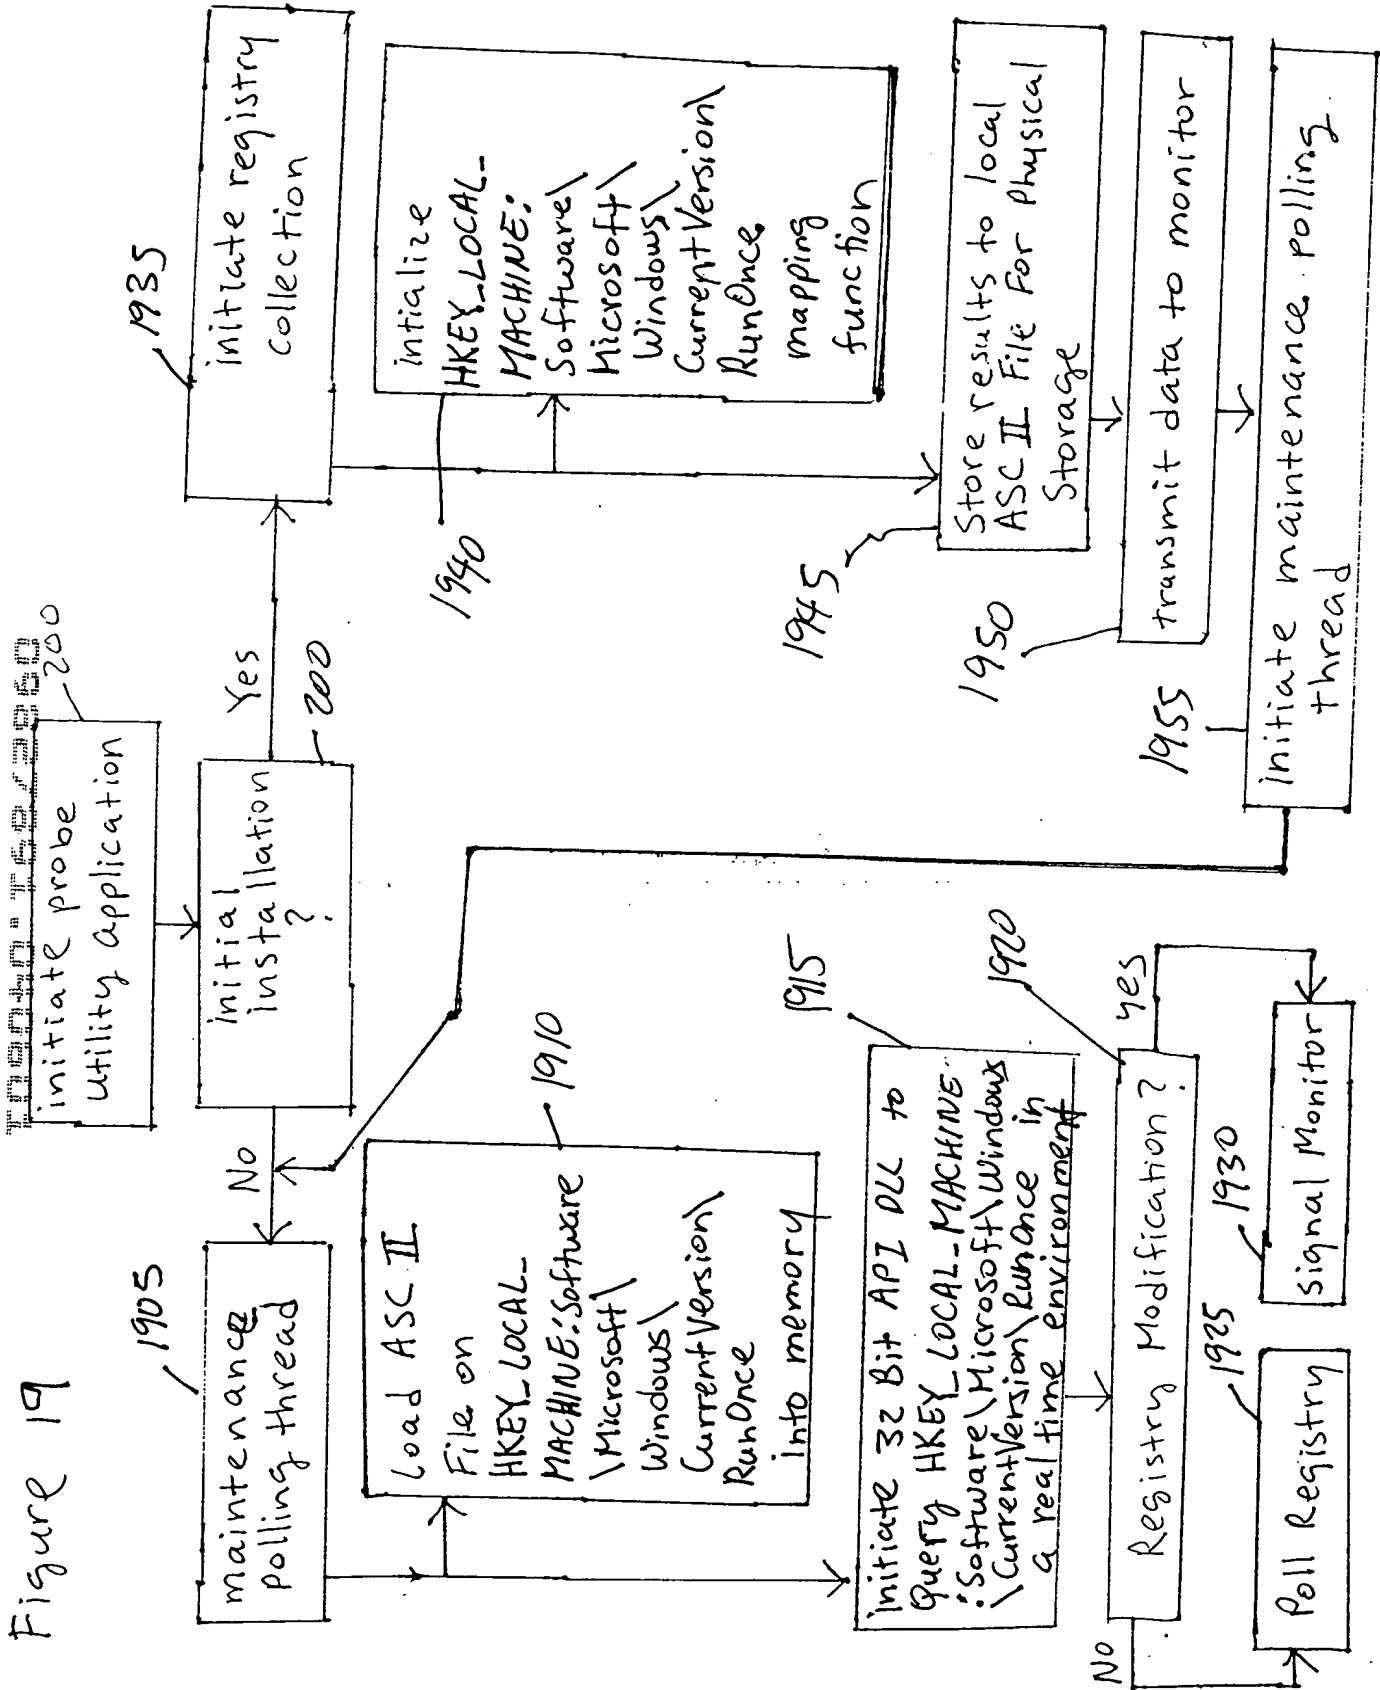 Figure 19
initiate probe
utility application
200
initial
installation
?
200
No
Yes
1905
maintenance
polling thread
Load ASC II
File on
HKEY_LOCAL_
MACHINE:Software
\Microsoft\
Windows\
CurrentVersion\
RunOnce
into memory
1910
1915
initiate 32 Bit API DLL to
Query HKEY_LOCAL_MACHINE
:Software\Microsoft\Windows
\CurrentVersion\RunOnce in
a real time environment
1920
Registry Modification?
No
yes
1925
Poll Registry
1930
Signal Monitor
1935
initiate registry
collection
1940
intialize
HKEY_LOCAL_
MACHINE:
Software\
Microsoft\
Windows\
CurrentVersion\
RunOnce
mapping
function
1945
Store results to local
ASC II File For Physical
Storage
1950
transmit data to monitor
1955
Initiate maintenance polling
thread